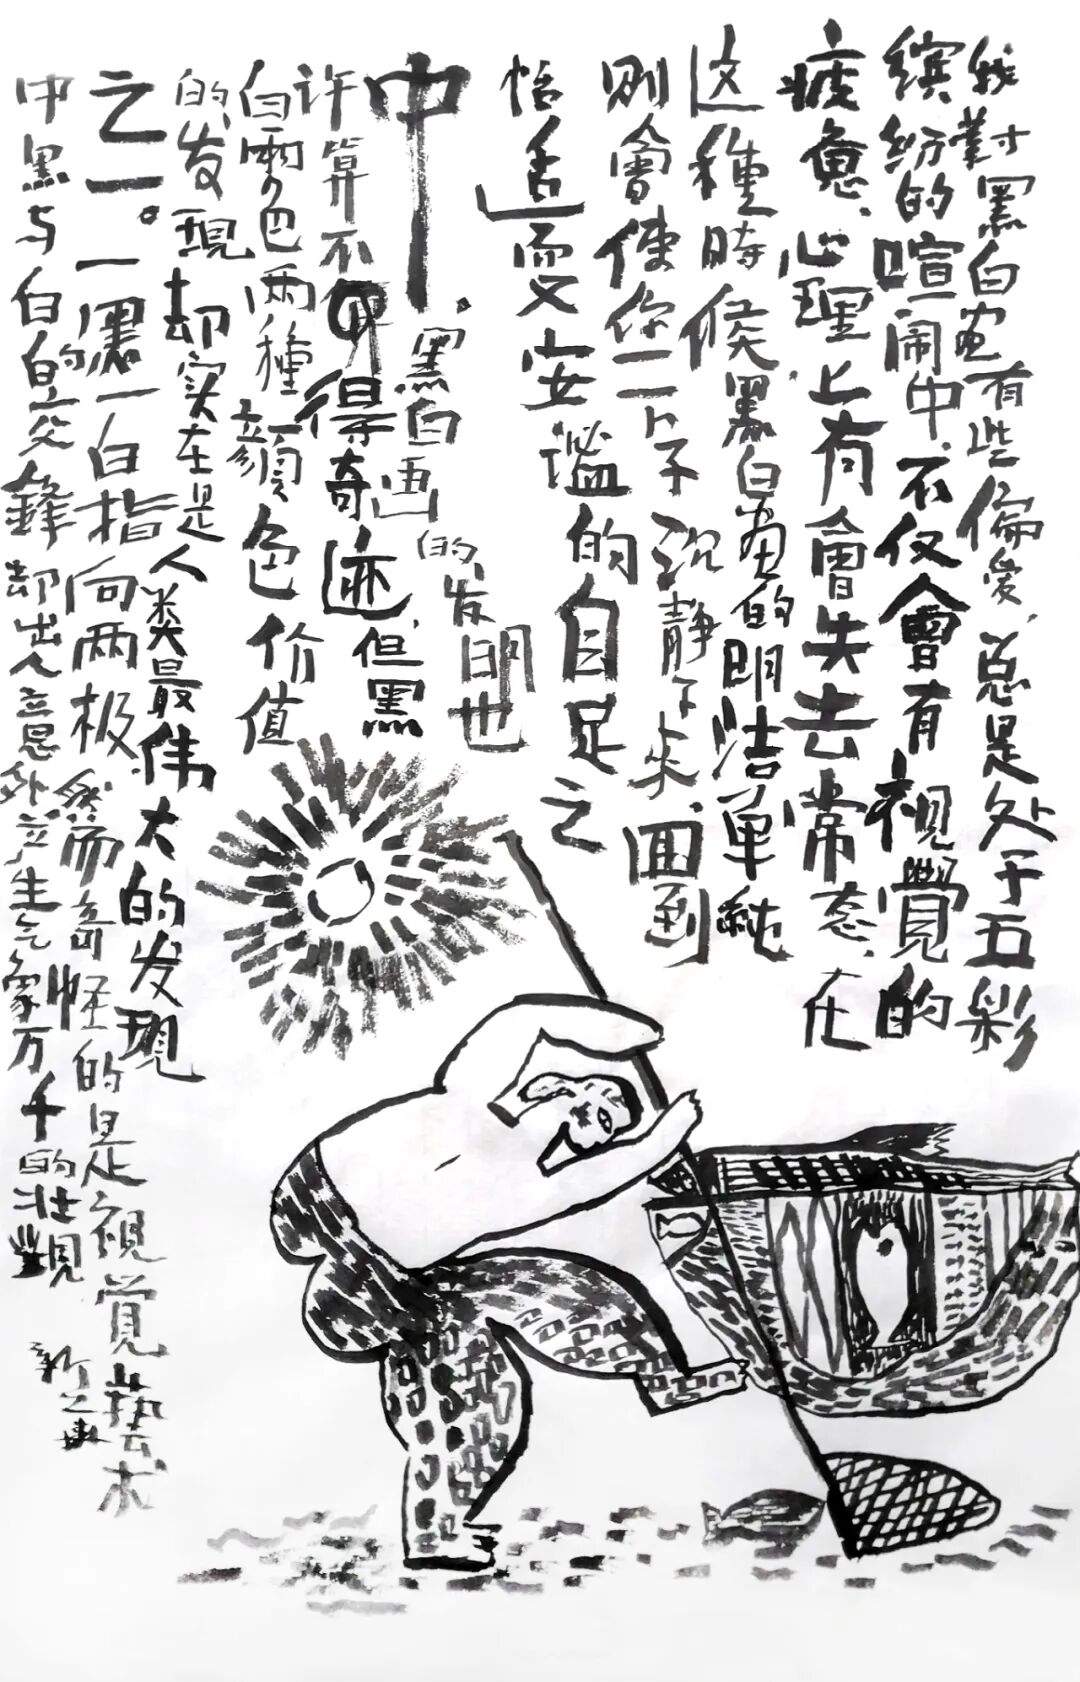 我對黑白画有些偏愛,总是处于五彩
缤纷的喧闹中,不仅會有视覺的
疲惫、心理上有會失去常态,在
这種時候黑白画的明洁單純
则會使你一下子沉靜下来,回到
恬适而又安谧的自足之
中。黑白画的发明也
许算不得奇迹,但黑
白兩色两種颜色价值
的发現却实在是人类最伟大的发現
之一。一黑一白指向两极,然而奇怪的是視覺藝术
中黑与白的交鋒却出人意外产生气象万千的壮觀